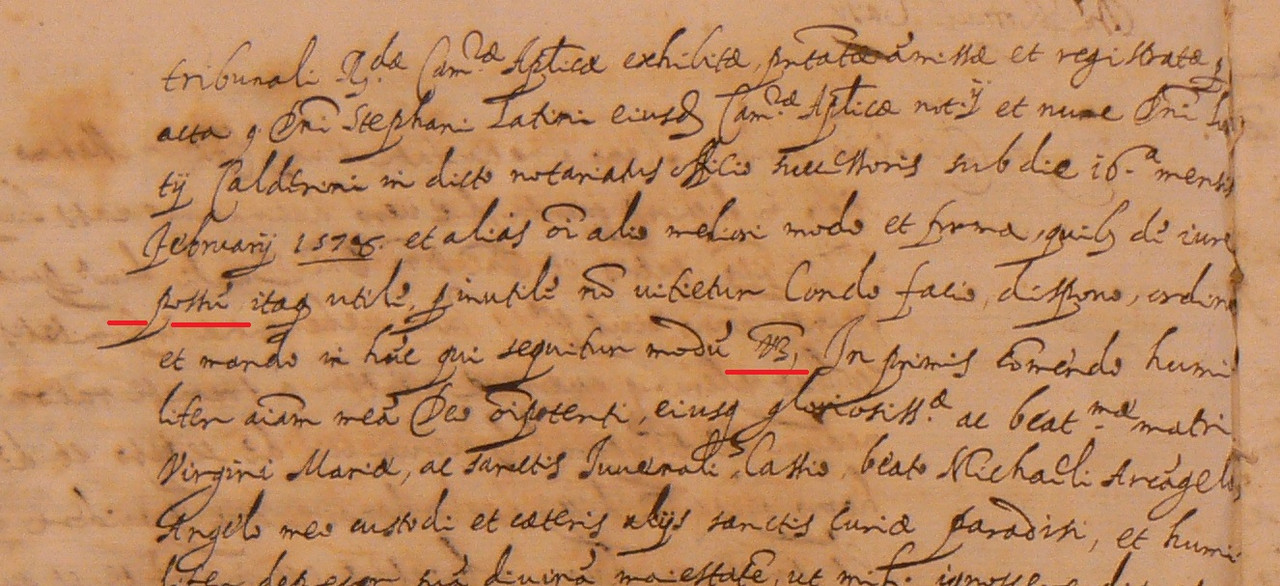 tribunali R.dæ Cam.ræ Aplicæ exhibitæ, pntatæ admissæ et registratæ p
acta q. Dni Stephani Latini eiusd Cam.ræ Aplicæ not.ij et nunc Dni
tij Calderini in dicto notariatus officio successoris sub die 16.a mensis
februarij 1578. et alias oi alio meliori modo et forma, quib de iure
possu itaq utile, p inutile nō uitietur Condo facio, dispono, ordino
et mando in huc qui sequitur modu vz, In primis comendo humi
liter aiam mea Deo oipotenti, eiusq gloriosiss.æ ac beat.mæ matri
Virgini Mariæ, ac sanctis Iuuenali, Cassio, beato Michaeli Arcāgelo,
Angelo meo custodi et cæteris alijs sanctis Curiæ paradisi, et humi
liter suā diuinā maiestatē, ut